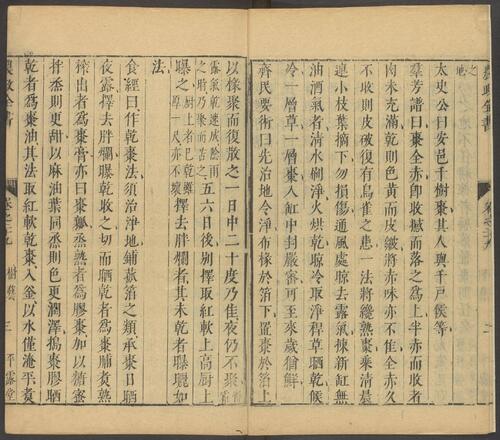 太史公曰安邑千樹棗其人與千戶侯等
羣芳譜曰棗全赤即收撼而落之爲上半赤而收者
肉未充滿乾則色黃而皮皺將赤味亦不佳全赤久
不收則皮破復有烏雀之患一法將纔熟棗乘清晨
連小枝葉摘下勿損傷通風處晾去露氣揀新缸無
油酒氣者清水刷淨火烘乾晾冷取淨稈草晒乾候
冷一層草一層棗入缸中封嚴密可至來歲猶鮮
齊民要術曰先治地令淨布椽於箔下置棗於箔上
以椓聚而復散之一日中二十度乃佳夜仍不聚
露氣乾速成陰雨
之時乃聚而苫之
五六日後別擇取紅軟上高厨上
曝之
厨上者已乾雖
厚一尺亦不壞
擇去胖爛者其未乾者曝曬如
法
食經曰作乾棗法須治淨地鋪菰箔之類承棗日晒
夜露擇去胖爛曝乾收之切而晒乾者爲棗脯煑熟
榨出者爲棗膏亦曰棗瓤烝熟者爲膠棗加以糖蜜
拌烝則更甜以麻油葉同烝則色更潤澤搗棗膠晒
乾者爲棗油其法取紅軟乾棗入釜以水僅淹平煑
農政全書
樹藝
三
平露堂